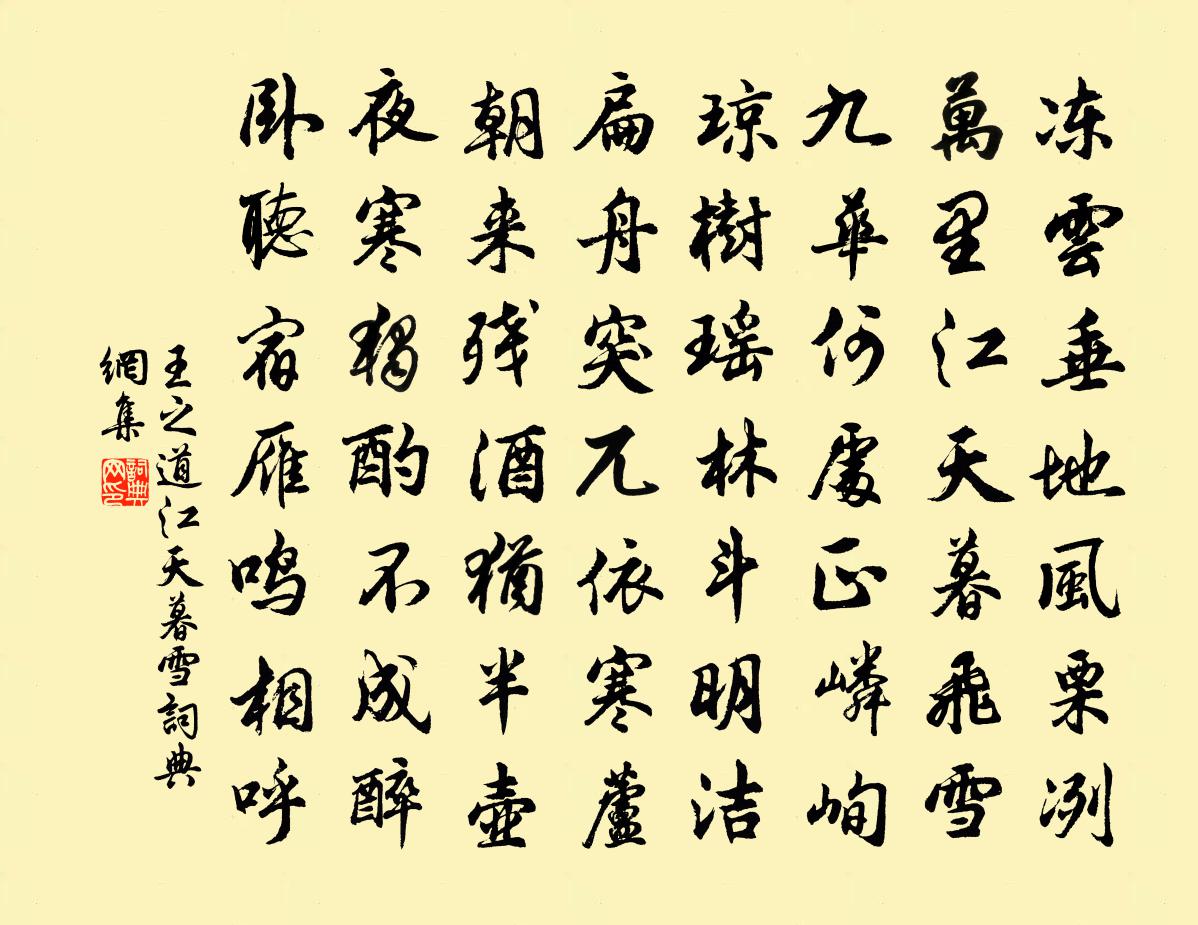 冻雲垂地風栗冽
萬里江天暮飛雪
九華何處正嶙峋
琼樹瑶林斗明洁
扁舟突兀依寒蘆
朝来残酒猶半壺
夜寒独酌不成醉
卧聽宿雁鸣相呼
王之道江天暮雪詞典
網集
詞典
网印